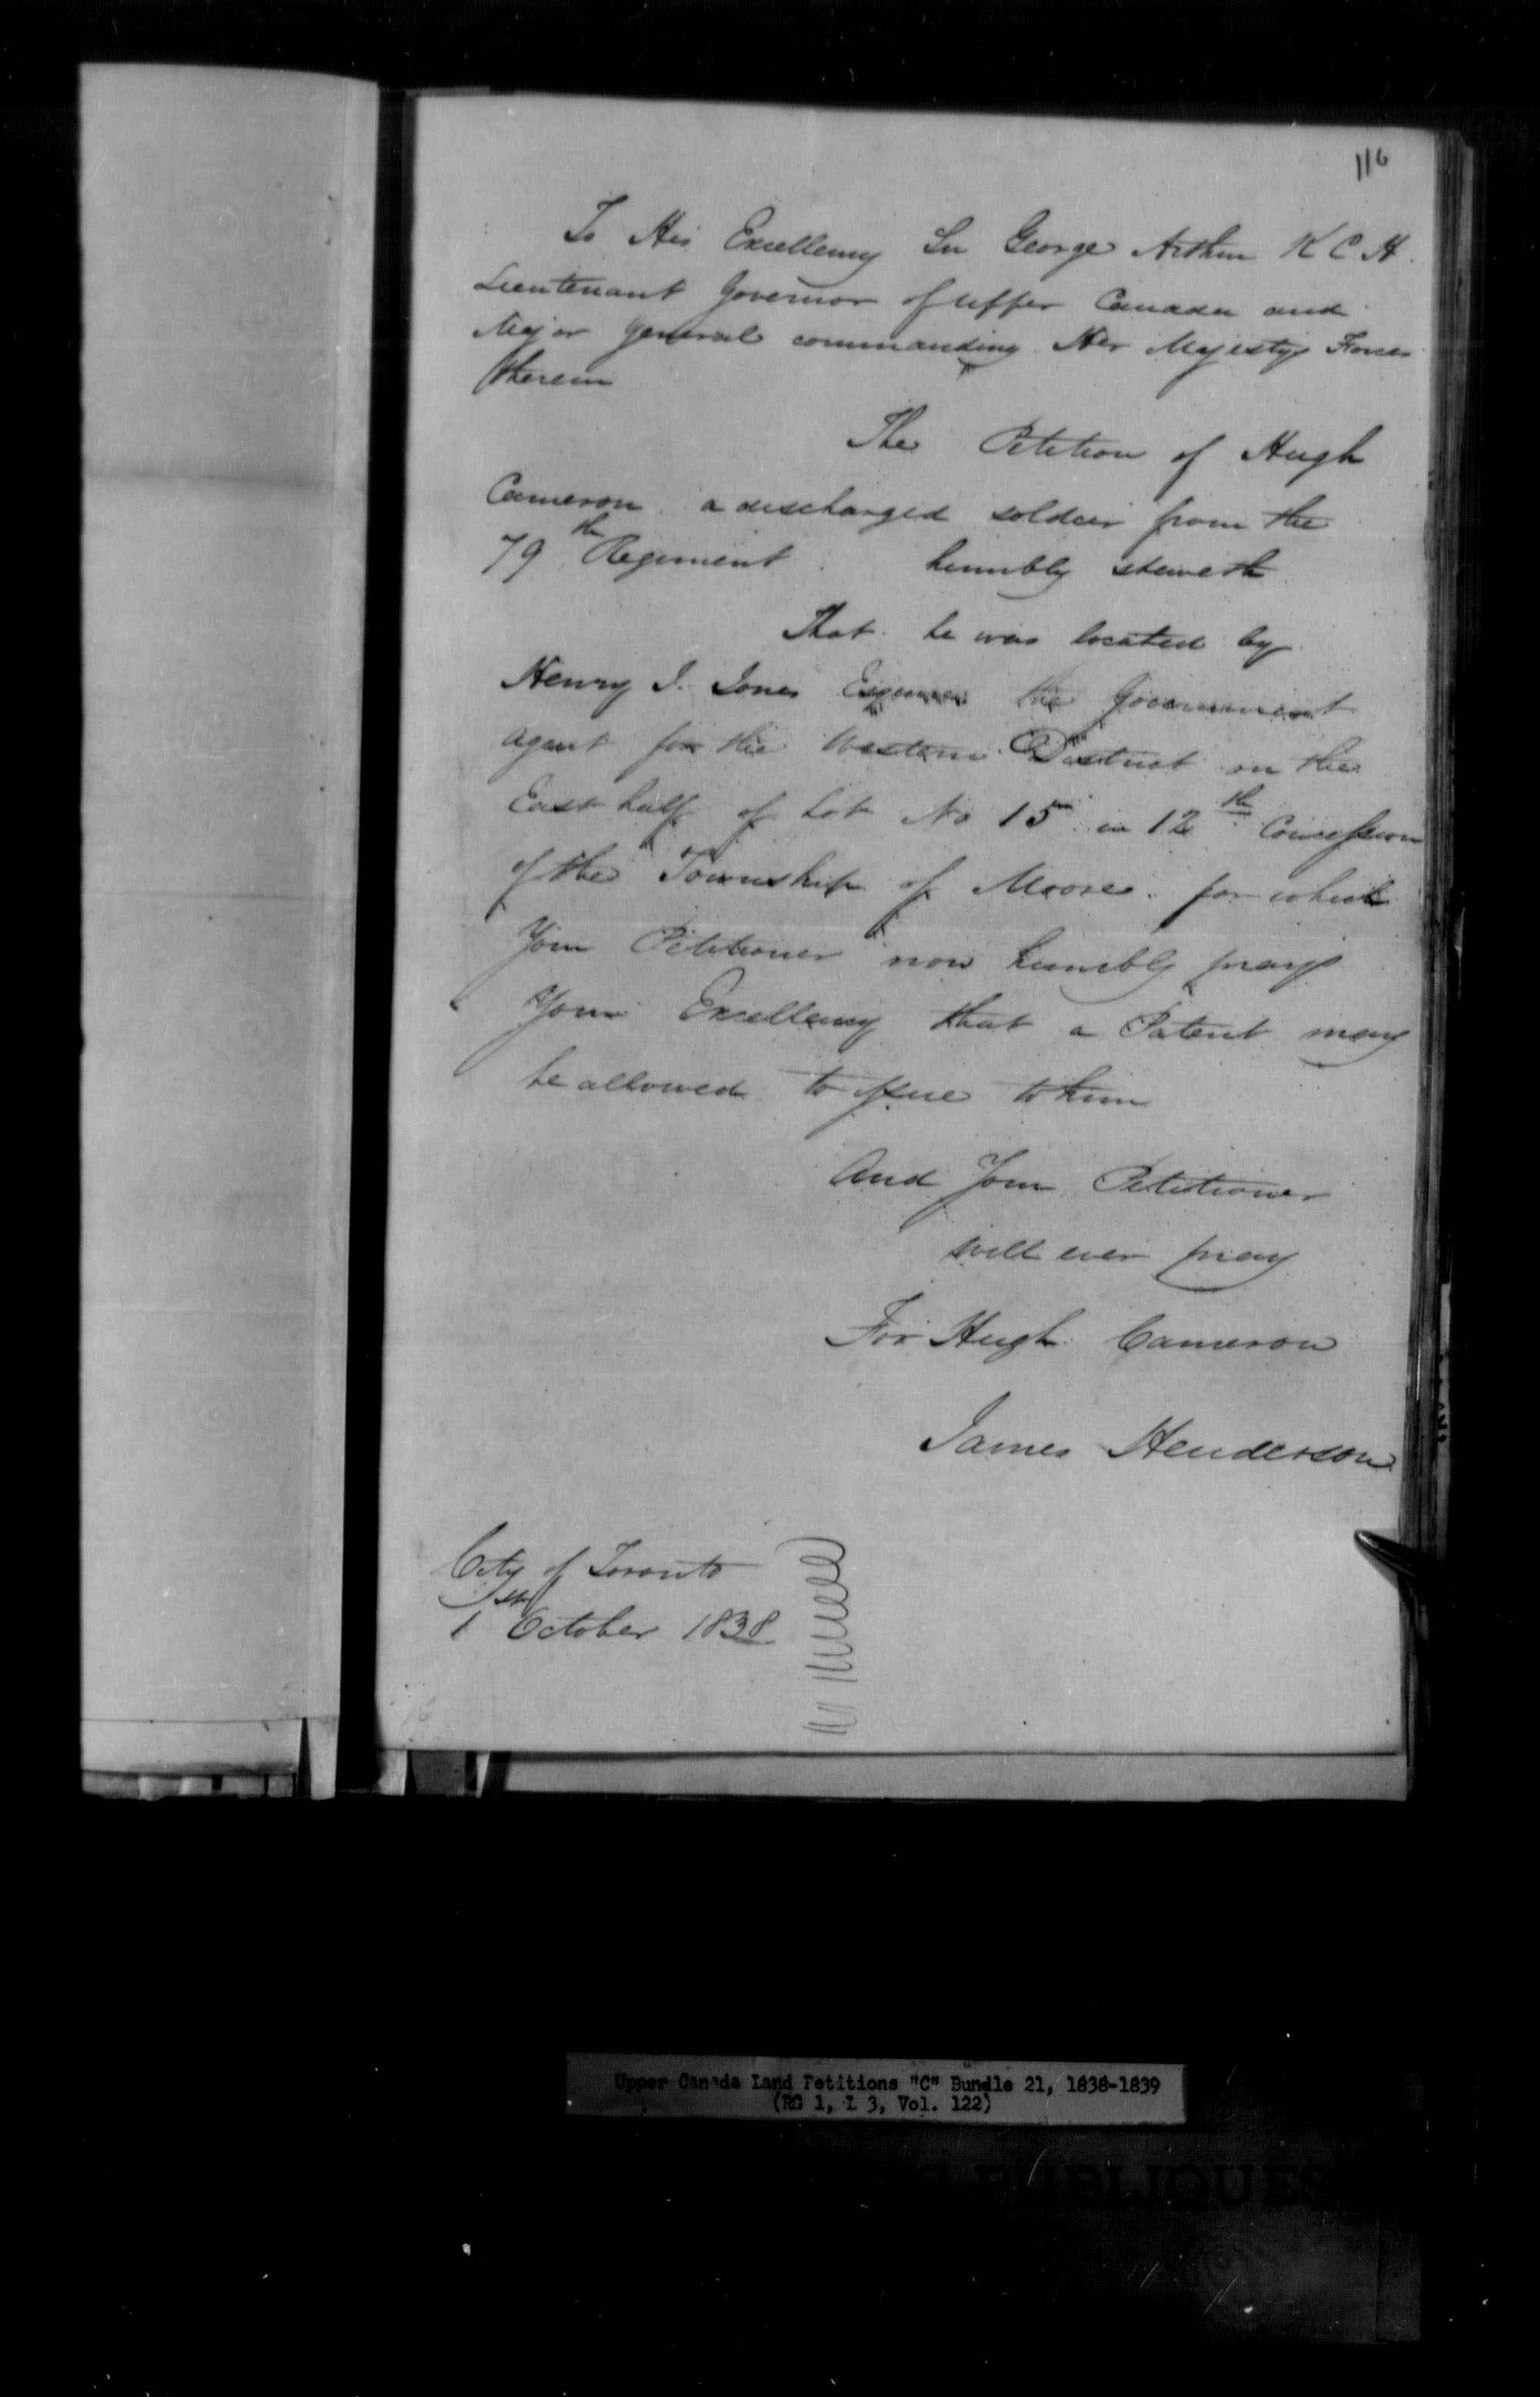 116
To His Excellency Sir George Arthur K C H.
Lieutenant Governor of Upper Canada and
Major General commanding Her Majestys Forces
therein
The Petition of Hugh
Cameron a discharged soldier from the
79th Regiment humbly sheweth
That he was located by
Henry J. Jones Esquire the Government
Agent for the Western District on the
East half of Lot No 15 in 12th Concession
of the Township of Moore for which
Your Petitioner now humbly prays
Your Excellency that a Patent may
be allowed to issue to him
And Your Petitioner
will ever pray
For Hugh Cameron
James Henderson
City of Toronto
1st October 1838
Upper Canada Land Petitions "C" Bundle 21, 1838-1839
(RG 1, L 3, Vol. 122)
PUBLIQUES